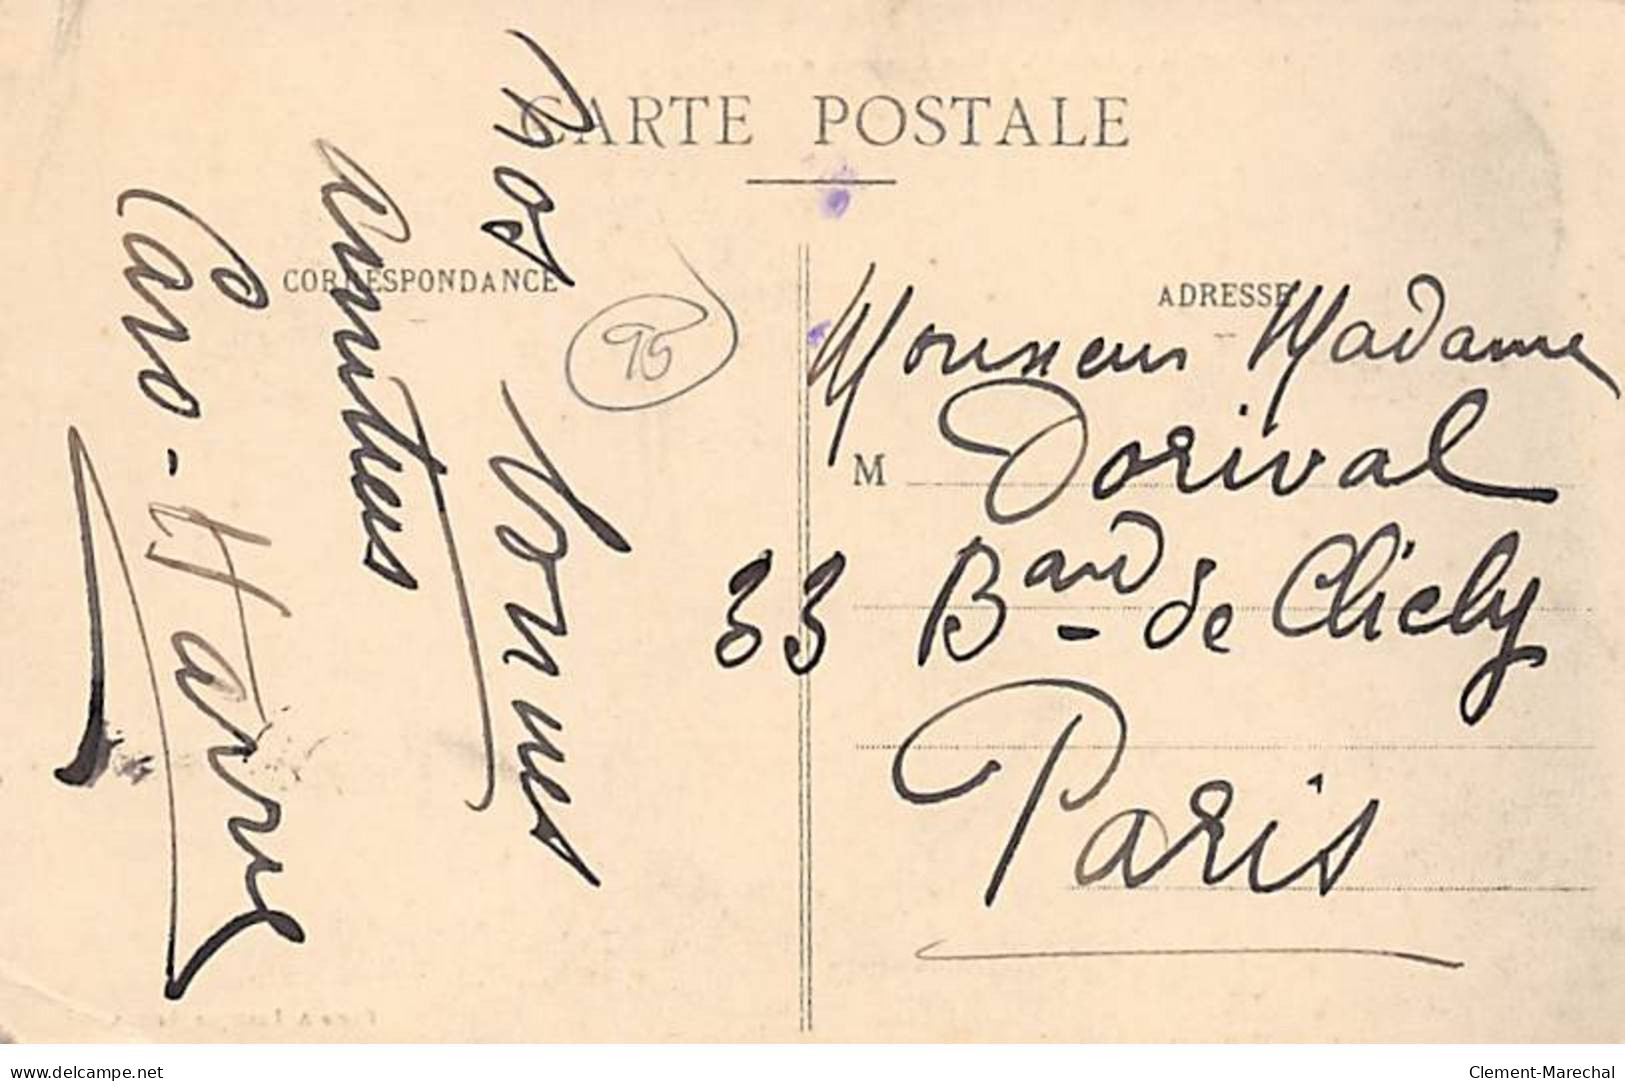 CARTE POSTALE
CORRESPONDANCE
ADRESSE
Nos bonnes
amitiés
Caro-Harvel
95
Monsieur Madame
M Dorival
33 Bard de Clichy
Paris
www.delcampe.net
Clement-Marechal